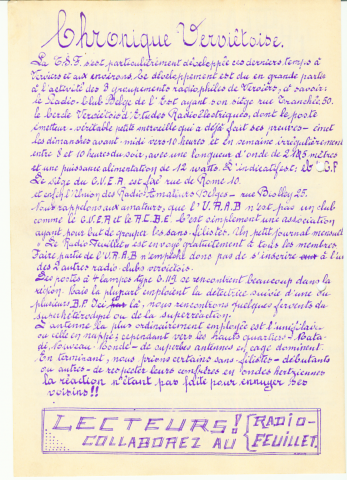 Chronique Verviétoise.
La T.S.F. s'est particulièrement développée ces derniers temps à
Verviers et aux environs. Ce développement est du en grande partie
à l'activité des 3 groupements radiophiles de Verviers, à savoir:
le Radio-Club Belge de l'Est ayant son siège rue 30.
le Cercle Verviétois d'Etudes Radioélectriques, dont le poste
émetteur - véritable petite merveille qui a déjà fait ses preuves - émet
les dimanches avant-midi vers 10 heures et en semaine irrégulièrement
entre 8 et 10 heures du soir, avec une longueur d'onde de mètres
et une puissance alimentation de 12 watts. L'indicatif est:
Le siège du C.V.E.R est fixé rue de Rome 10.
et enfin l'Union des Radio Amateurs Belges - rue 25.
Nous rappelons aux amateurs, que l'U.R.A.B n'est pas un club
comme le C.V.E.R et le R.C.B.E. C'est simplement une association
ayant pour but de grouper les sans-filistes. Un petit journal mensuel
"Le Radio Feuillet" est envoyé gratuitement à tous les membres.
Faire partie de l'U.R.A.B n'empêche donc pas de s'inscrire à l'un
des 2 autres radio clubs verviétois.
Les postes à 4 lampes type C.119 se rencontrent beaucoup dans la
région. Mais la plupart emploient la détectrice suivie d'une ou
plusieurs B.F. Ici là, nous rencontrons quelques fervents du
superhétérodyne ou de la superréaction.
L'antenne la plus ordinairement employée est l'unifilaire
ou celle en nappe; cependant vers les hauts quartiers
Nouveau-Monde - de superbes antennes en cage dominent.
En terminant, nous prions certains sans-filistes - débutants
ou autres - de respecter leurs confrères en ondes hertziennes
la réaction n'étant pas faite pour ennuyer ses
voisins!!
LECTEURS! RADIO-
COLLABOREZ AU FEUILLET